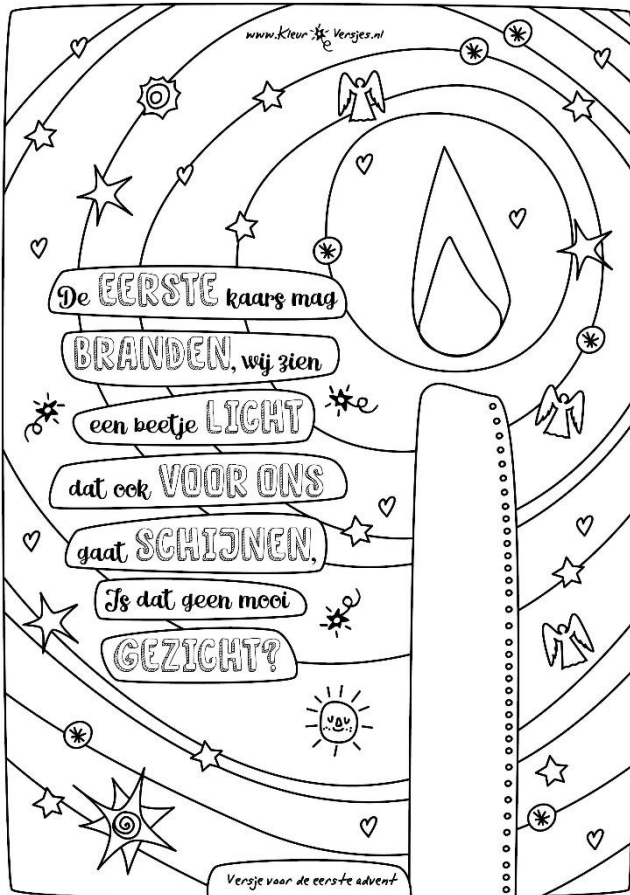 www.Kleur Versjes.nl
De EERSTE kaars mag
BRANDEN, wij zien
een beetje LICHT
dat ook VOOR ONS
gaat SCHIJNEN,
Is dat geen mooi
GEZICHT?
Versje voor de eerste advent